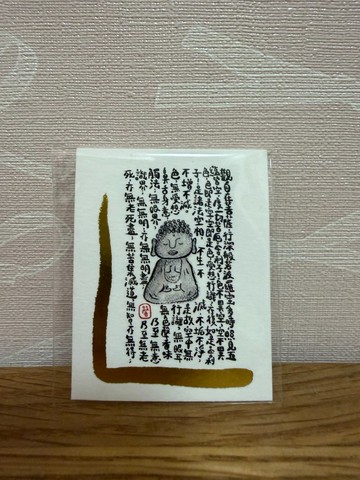 観自在菩薩行深般若波羅蜜多時照見五
蘊皆空度一切苦厄舎利子色不異空空不異
色色即是空空即是色受想行識亦復如是舎利
子是諸法空相不生不滅不垢不浄
不増不減是故空中無
色無受想行識無眼耳
鼻舌身意無色聲香味
觸法無眼界乃至無意
識界無無明亦無無明盡乃至無老
死亦無老死盡無苦集滅道無知亦無得